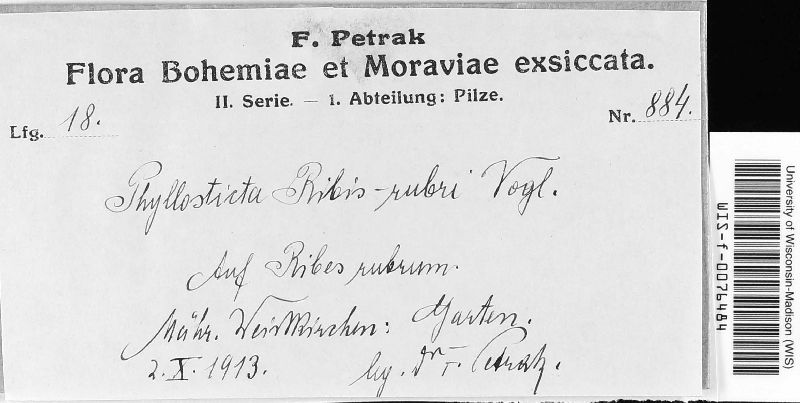 F. Petrak
Flora Bohemiae et Moraviae exsiccata.
II. Serie. — 1. Abteilung: Pilze.
Lfg. 18.
Nr. 884.
Phyllosticta Ribis-rubri Vogl.
Auf Ribes rubrum.
Mähr. Weisskirchen: Garten.
2. X. 1913. leg. Dr. F. Petrak.
University of Wisconsin-Madison (WIS)
WIS-f-0076484